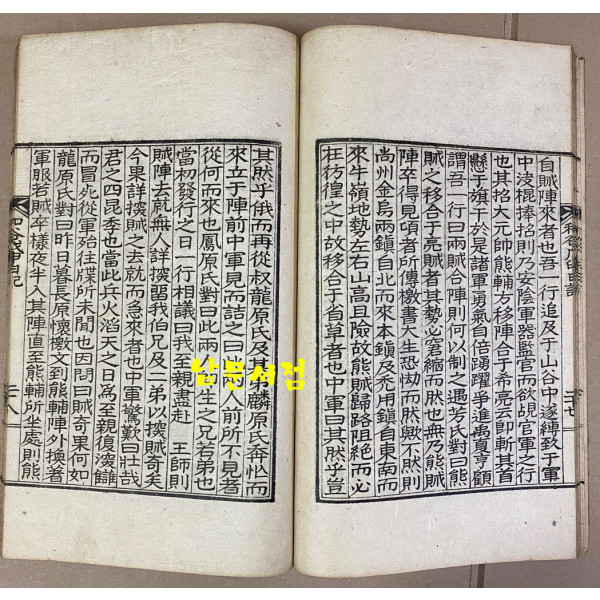 自賊陣來者也吾一行追及于山谷中遂縛致于軍
中浚棍捧招則乃安陰軍器監官而欲覘官軍之行
也其招大元帥熊輔方移陣合于希亮云即斬其首
懸于旗于於是諸軍勇氣自倍踴躍爭進禹夏亨顧
謂吾一行曰兩賊合陣則何以制之遇芳氏對曰熊
賊之移合于亮賊者其勢必窮縮而然也無乃熊賊
陣卒得見頃者所傳檄書大生恐㥘而然歟不然則
尚州金烏兩鎮自北而來本鎮及禿用鎮自東南而
來牛嶺地勢左右山高且險故熊賊歸路阻絶而必
在彷徨之中故移合于省草者也中軍曰其然乎豈
其然乎俄而再從叔龍原氏及其
麟原氏奔忙而
來立于陣前中軍見而詰之曰此
人前所不見者
從何而來也鳳原氏對曰此兩人
生之兄若弟也
當初發行之日一行相議曰我至親盡赴 王師則
賊陣去就無人詳探留我伯兄及二弟以探賊奇矣
今果詳探賊之去就而急來者也中軍驚歎曰壯哉
君之四昆季也當此兵火滔天之日爲至親復讎
而冒死從軍殆往牒所未聞也因問曰賊奇果何如
龍原氏對曰昨日暮長原懷檄文到熊輔陣外換著
軍服若賊卒樣夜半入其陣直至熊輔所坐處則熊
남문서점